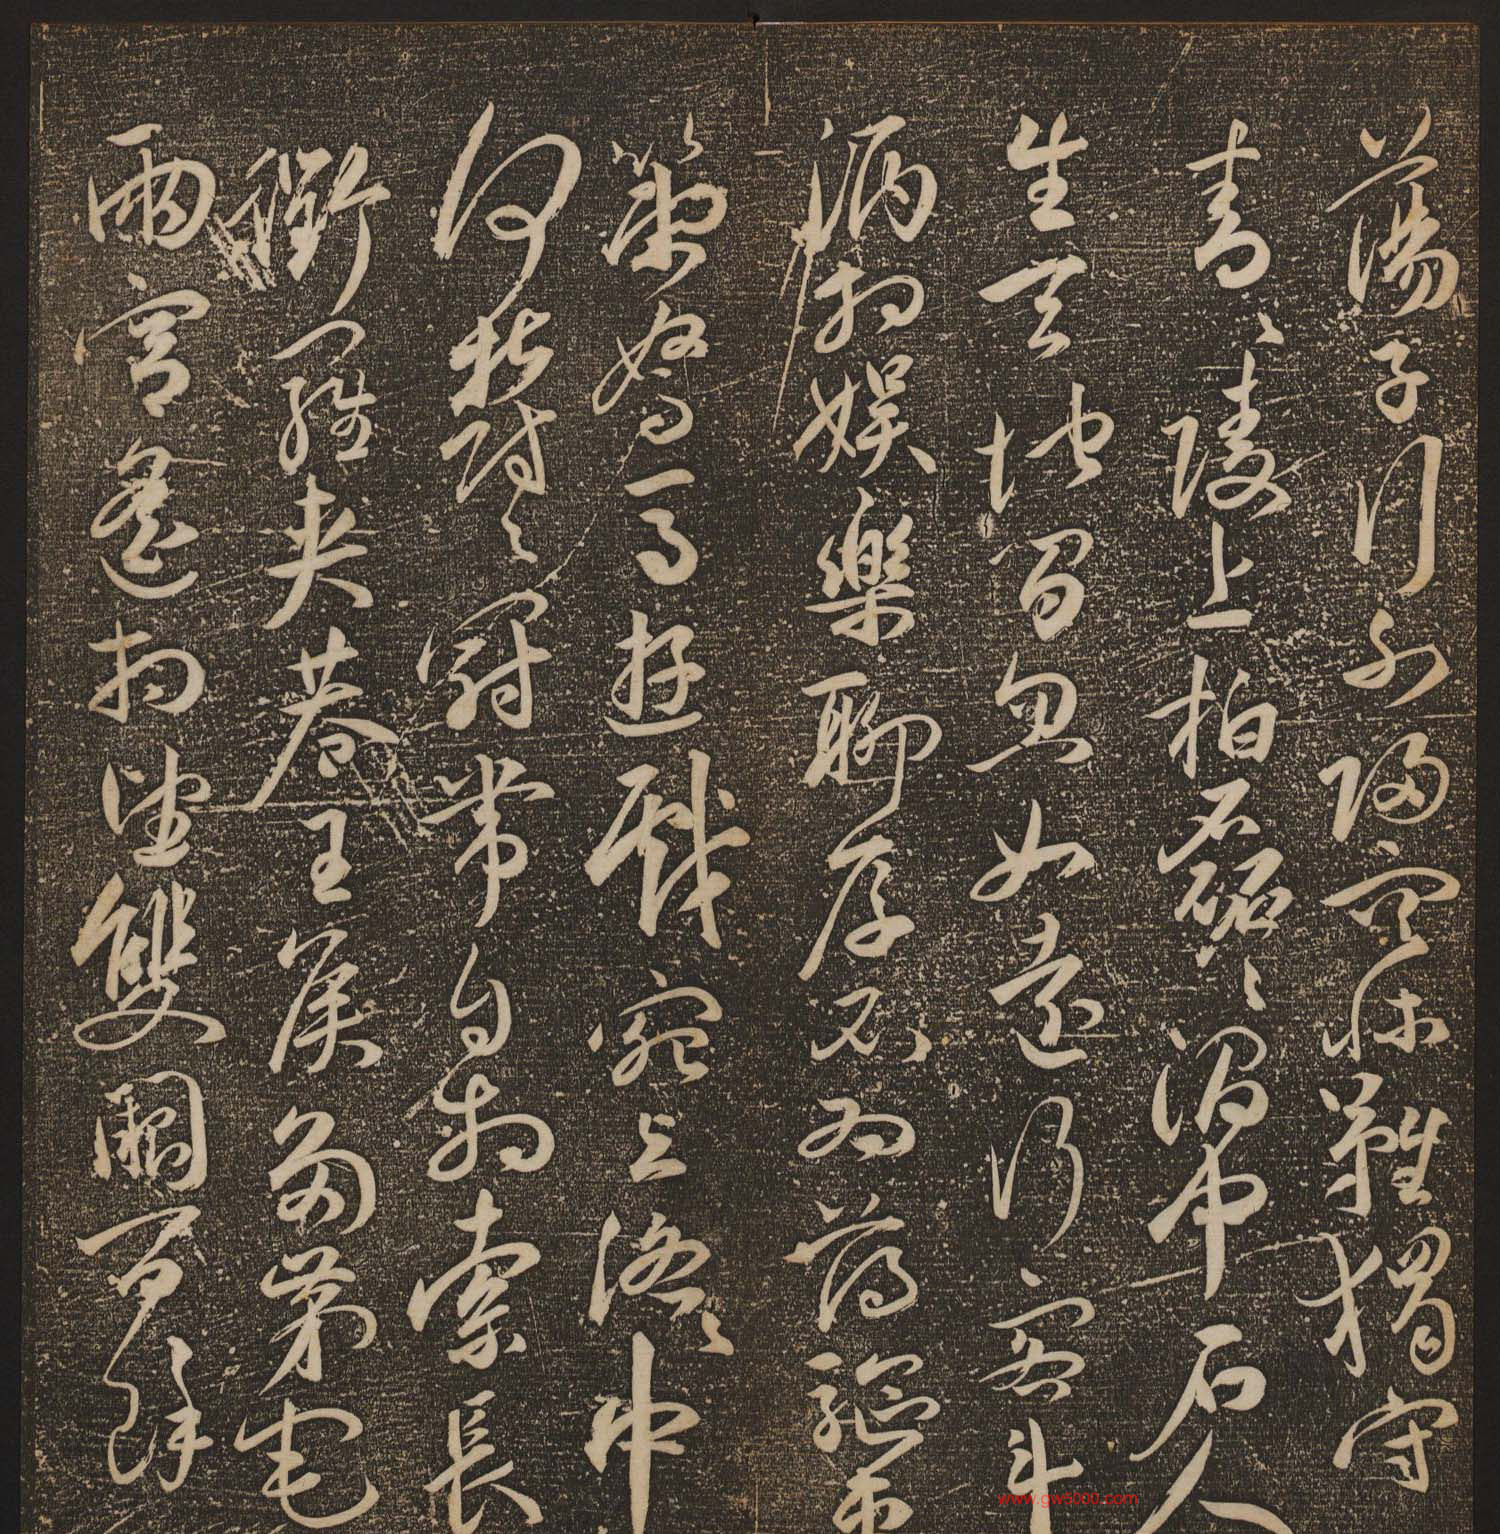 蕩子行不歸空床難獨守
青〻陵上柏磊〻澗中石人
生天地間忽如遠行客斗
酒相娛樂聊厚不為薄驅車
策駑馬遊戲宛与洛〻中
何鬱〻冠帶自相索長
衢羅夾巷王侯多第宅
兩宮遙相望雙闕百餘
www.gw5000.com